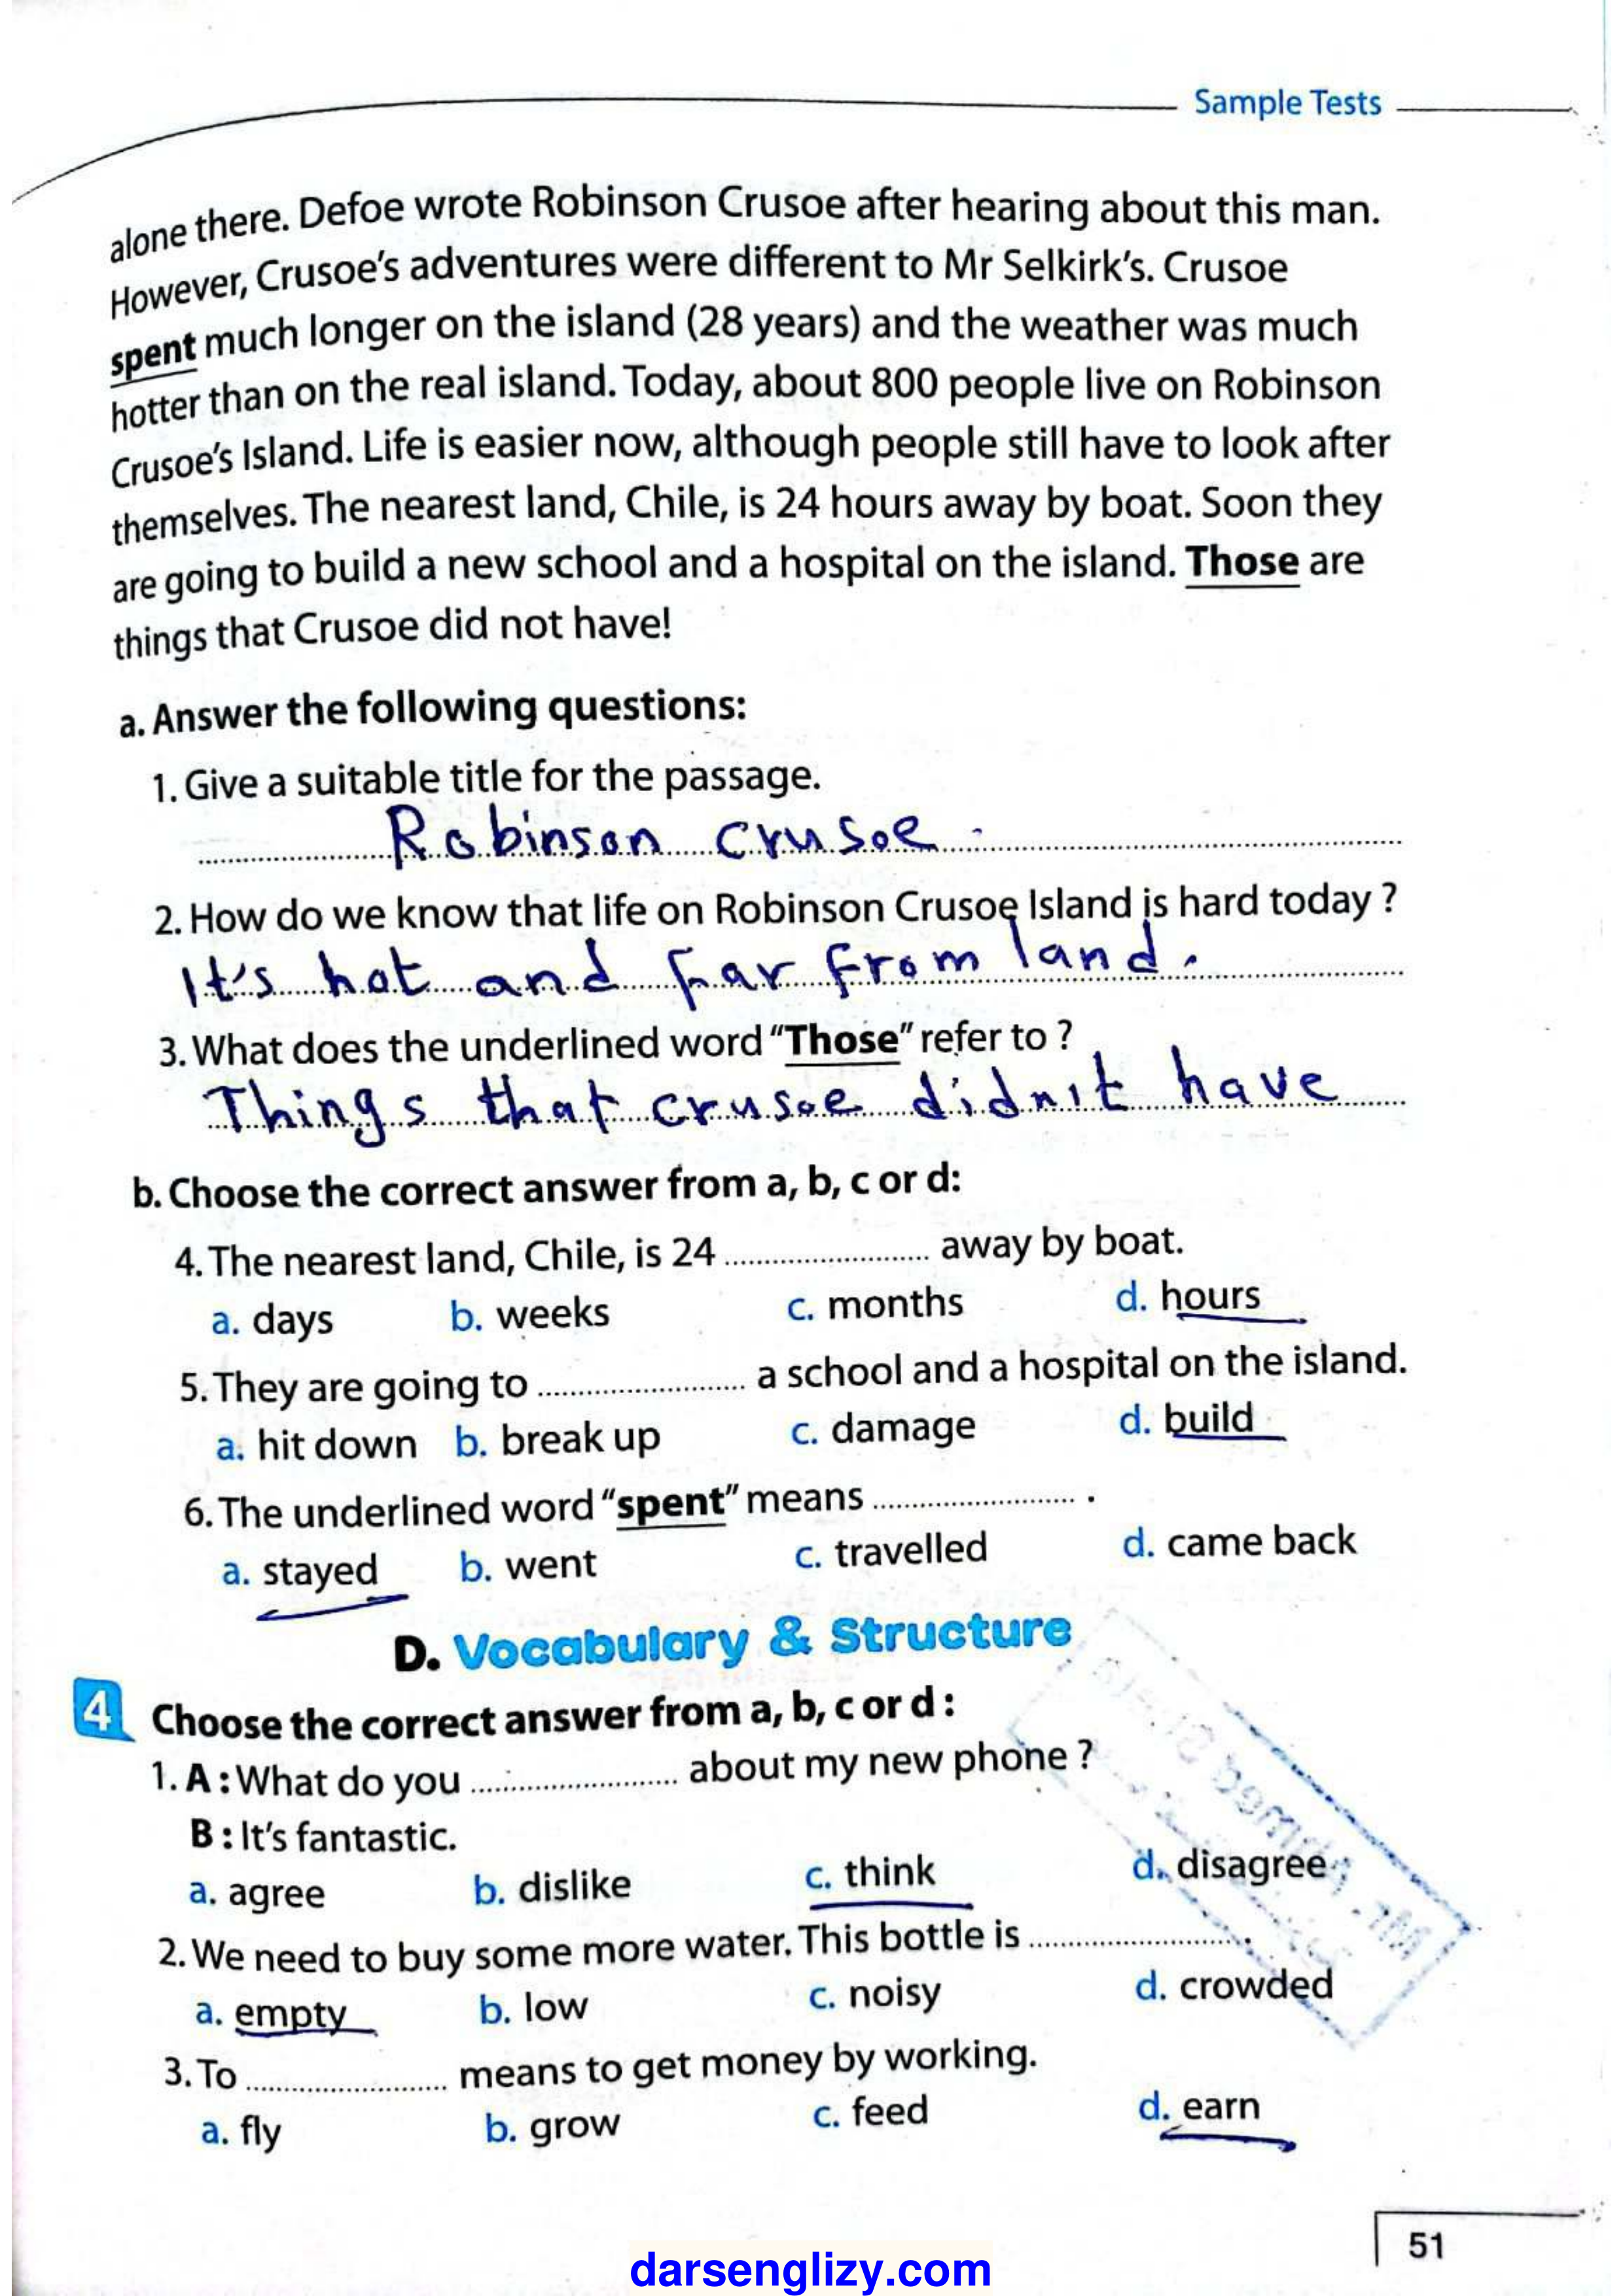 Sample Tests
alone there. Defoe wrote Robinson Crusoe after hearing about this man.
However, Crusoe's adventures were different to Mr Selkirk's. Crusoe
spent much longer on the island (28 years) and the weather was much
hotter than on the real island. Today, about 800 people live on Robinson
Crusoe's Island. Life is easier now, although people still have to look after
themselves. The nearest land, Chile, is 24 hours away by boat. Soon they
are going to build a new school and a hospital on the island. Those are
things that Crusoe did not have!
a. Answer the following questions:
1. Give a suitable title for the passage.
Robinson crusoe.
2. How do we know that life on Robinson Crusoe Island is hard today ?
It's hot and far from land.
3. What does the underlined word "Those" refer to ?
Things that crusoe didn't have
b. Choose the correct answer from a, b, c or d:
4. The nearest land, Chile, is 24 ........................ away by boat.
a. days b. weeks c. months d. hours
5. They are going to ........................ a school and a hospital on the island.
a. hit down b. break up c. damage d. build
6. The underlined word "spent" means ........................ .
a. stayed b. went c. travelled d. came back
D. Vocabulary & Structure
4 Choose the correct answer from a, b, c or d :
1. A : What do you ........................ about my new phone ?
B : It's fantastic.
a. agree b. dislike c. think d. disagree
2. We need to buy some more water. This bottle is ........................ .
a. empty b. low c. noisy d. crowded
3. To ........................ means to get money by working.
a. fly b. grow c. feed d. earn
51
darsenglizy.com